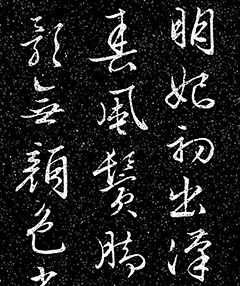 明妃初出漢
春風鬢腳
影無顏色